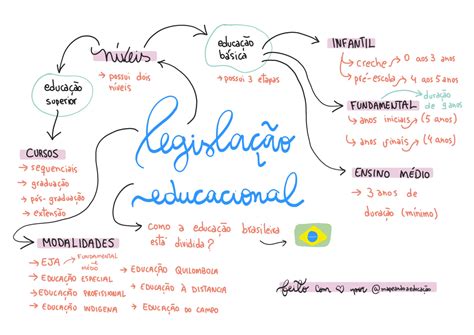 níveis
→ possui dois
níveis
educação
básica
→ possui 3 etapas
educação
superior
INFANTIL
→ creche → 0 aos 3 anos
→ pré-escola → 4 aos 5 anos
FUNDAMENTAL → duração
de 9 anos
→ anos iniciais → (5 anos)
→ anos finais → (4 anos)
ENSINO MÉDIO
→ 3 anos de
duração (mínimo)
legislação
educacional
CURSOS
→ sequenciais
→ graduação
→ pós-graduação
→ extensão
→ como a educação brasileira
está dividida?
MODALIDADES
→ EJA → FUNDAMENTAL
e
MÉDIO
→ EDUCAÇÃO ESPECIAL
→ EDUCAÇÃO PROFISSIONAL
→ EDUCAÇÃO INDIGENA
→ EDUCAÇÃO QUILOMBOLA
→ EDUCAÇÃO À DISTANCIA
→ EDUCAÇÃO DO CAMPO
feito com ♡ por @mapeandoaeducação